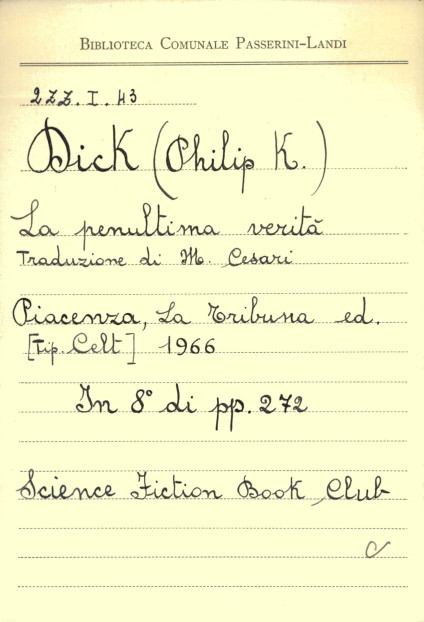 BIBLIOTECA COMUNALE PASSERINI-LANDI
2ZZ. I. 43
Dick (Philip K.)
La penultima verità
Traduzione di M. Cesari
Piacenza, La Tribuna ed.
[Tip. Celt] 1966
In 8° di pp. 272
Science Fiction Book Club